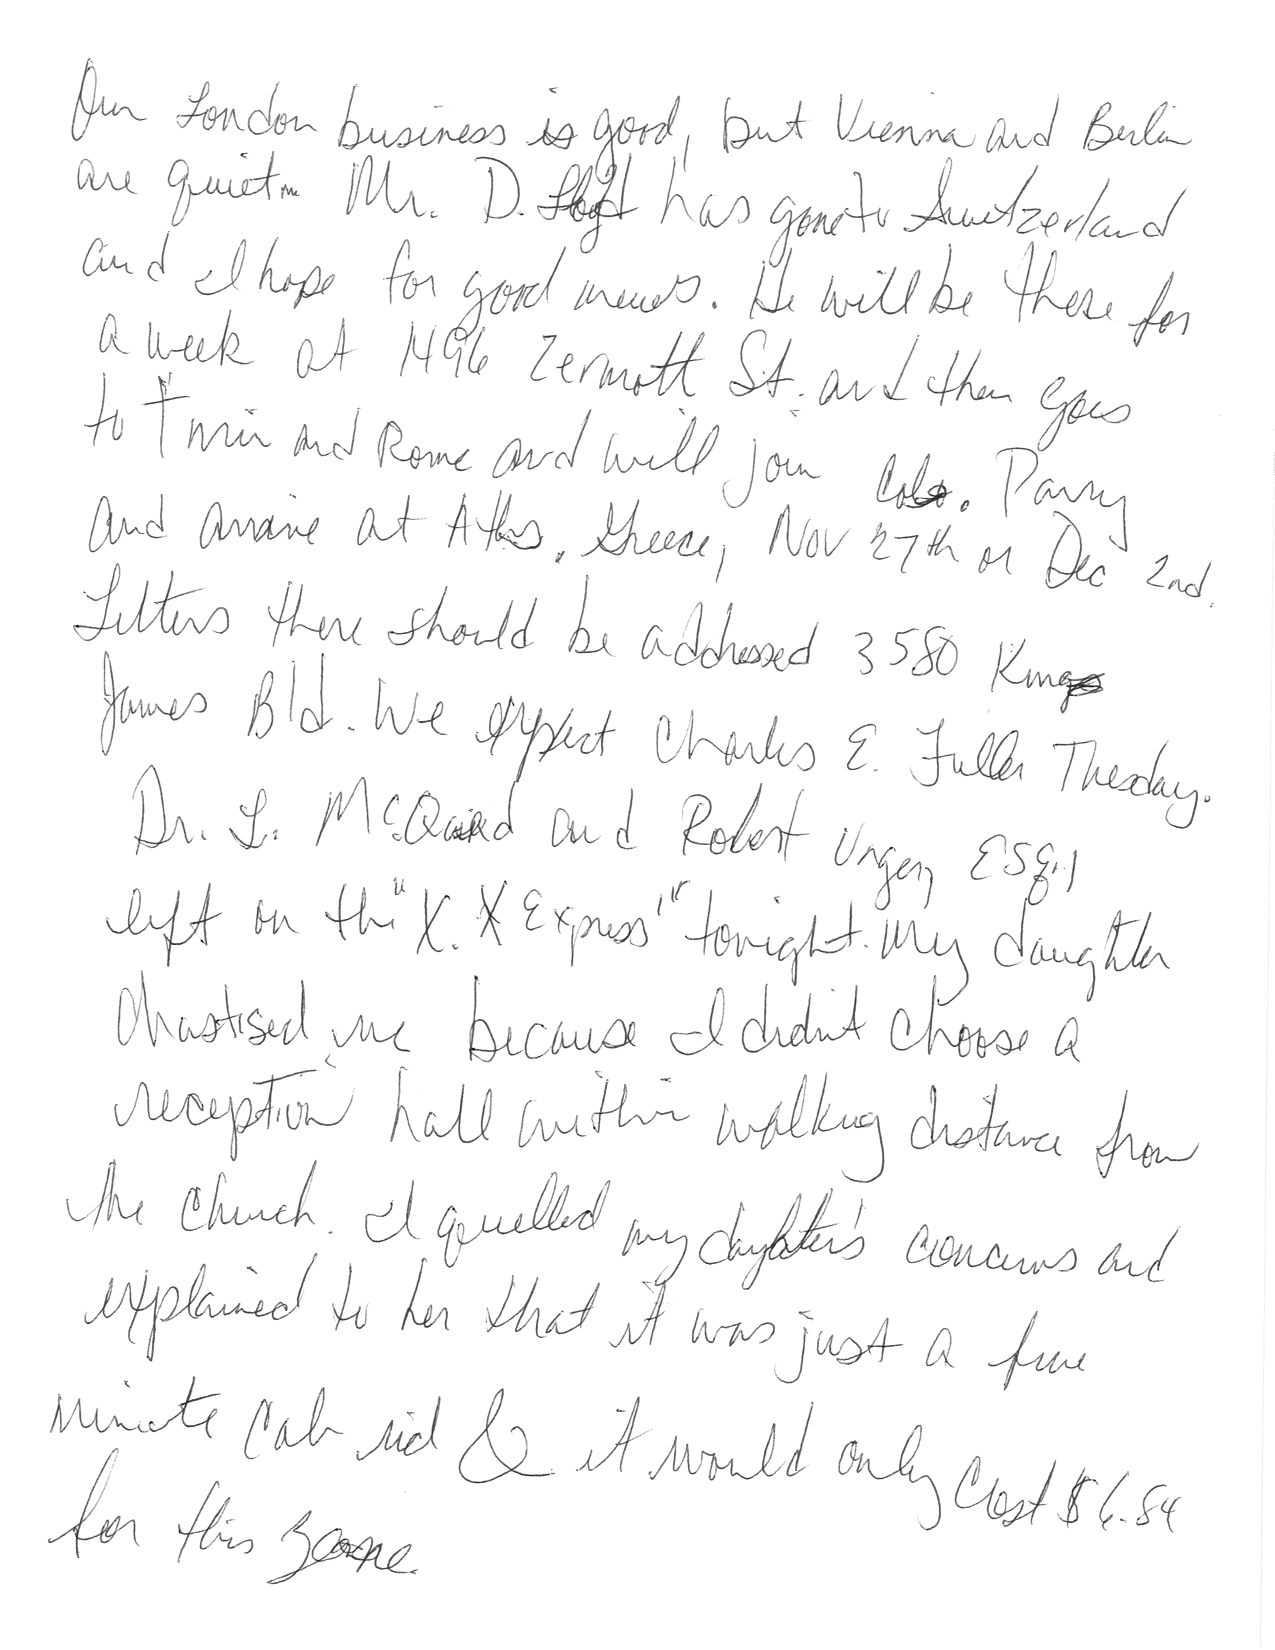 Our London business is good, but Vienna and Berlin
are quiet. Mr. D. Lloyd has gone to Switzerland
and I hope for good news. He will be there for
a week at 1496 Zermott St. and then goes
to Turin and Rome and will join Col. Parry
and arrive at Athens, Greece, Nov 27th or Dec 2nd.
Letters there should be addressed 3580 King
James Bld. We expect Charles E. Fuller Thesday.
Dr. L. McQuaid and Robert Unger, ESQ.,
left on the "X. X Express" tonight. My daughter
chastised me because I didn't choose a
reception hall within walking distance from
the church. I quelled my daughter's concerns and
explained to her that it was just a five
minute cab rid & it would only cost $6.84
for this zone.